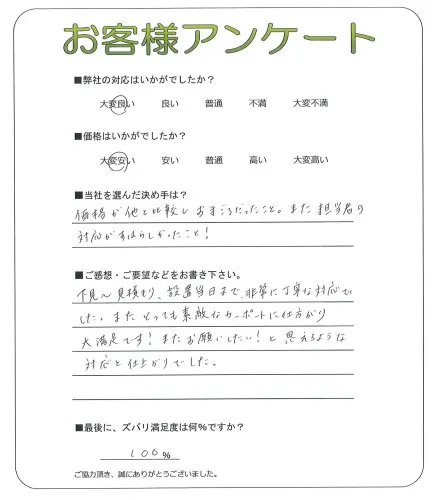 お客様アンケート
■弊社の対応はいかがでしたか？
大変良い 良い 普通 不満 大変不満
■価格はいかがでしたか？
大変安い 安い 普通 高い 大変高い
■当社を選んだ決め手は？
価格が他と比較しおまごろだったこと。また担当者の
対応がすばらしかったこと！
■ご感想・ご要望などをお書き下さい。
下見〜見積もり、設置当日まで、非常に丁寧な対応で
した。またとっても素敵なカーポートに仕上がり
大満足です！またお願いしたい！と思えるような
対応と仕上がりでした。
■最後に、ズバリ満足度は何%ですか？
100%
ご協力頂き、誠にありがとうございました。